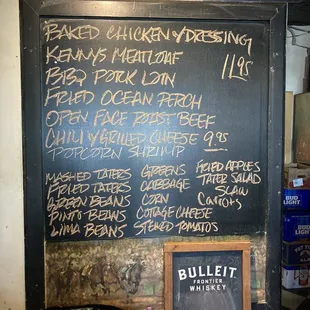 BAKED CHICKEN W/DRESSING
KENNYS MEATLOAF
11.95
BBQ PORK LOIN
FRIED OCEAN PERCH
OPEN FACE ROAST BEEF
CHILI W/GRILLED CHEESE 9.95
POPCORN SHRIMP
MASHED TATERS
FRIED TATERS
GREEN BEANS
PINTO BEANS
LIMA BEANS
GREENS
CABBAGE
CORN
COTTAGE CHEESE
STEWED TOMATOS
FRIED APPLES
TATER SALAD
SLAW
CARROTS
BULLEIT
FRONTIER
WHISKEY
BUD
LIGHT
BUD
LIGHT